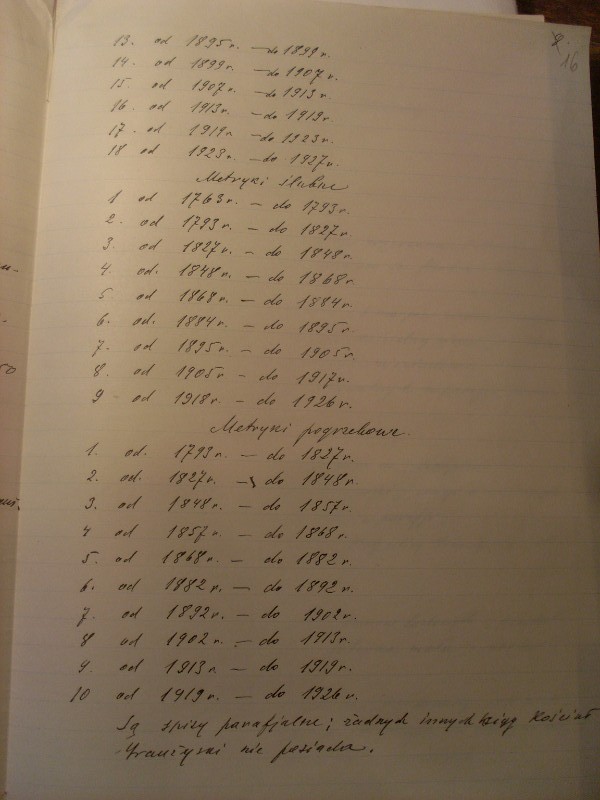 2.
16
13. od 1895 r. – do 1899 r.
14. od 1899 r. – do 1907 r.
15. od 1907 r. – do 1913 r.
16. od 1913 r. – do 1919 r.
17. od 1919 r. – do 1923 r.
18 od 1923 r. – do 1927 r.
Metryki ślubne
1 od 1763 r. – do 1793 r.
2. od 1793 r. – do 1827 r.
3. od 1827 r. – do 1848 r.
4. od. 1848 r. – do 1868 r.
5 od 1868 r. – do 1884 r.
6. od. 1884 r. – do 1895 r.
7. od 1895 r. – do 1905 r.
8. od 1905 r. – do 1917 r.
9 – od 1918 r. – do 1926 r.
Metryki pogrzebowe.
1. od. 1793 r. – do 1827 r.
2. od. 1827 r. – do 1848 r.
3. od 1848 r. – do 1857 r.
4 od 1857 r. – do 1868 r.
5. od 1868 r. – do 1882 r.
6. od 1882 r. – do 1892 r.
7. od 1892 r. – do 1902 r.
8 od 1902 r. – do 1913 r.
9. od 1913 r. – do 1919 r.
10 od 1919 r. – do 1926 r.
Są spisy parafjalne; żadnych innych ksiąg Kościół
nie posiada.